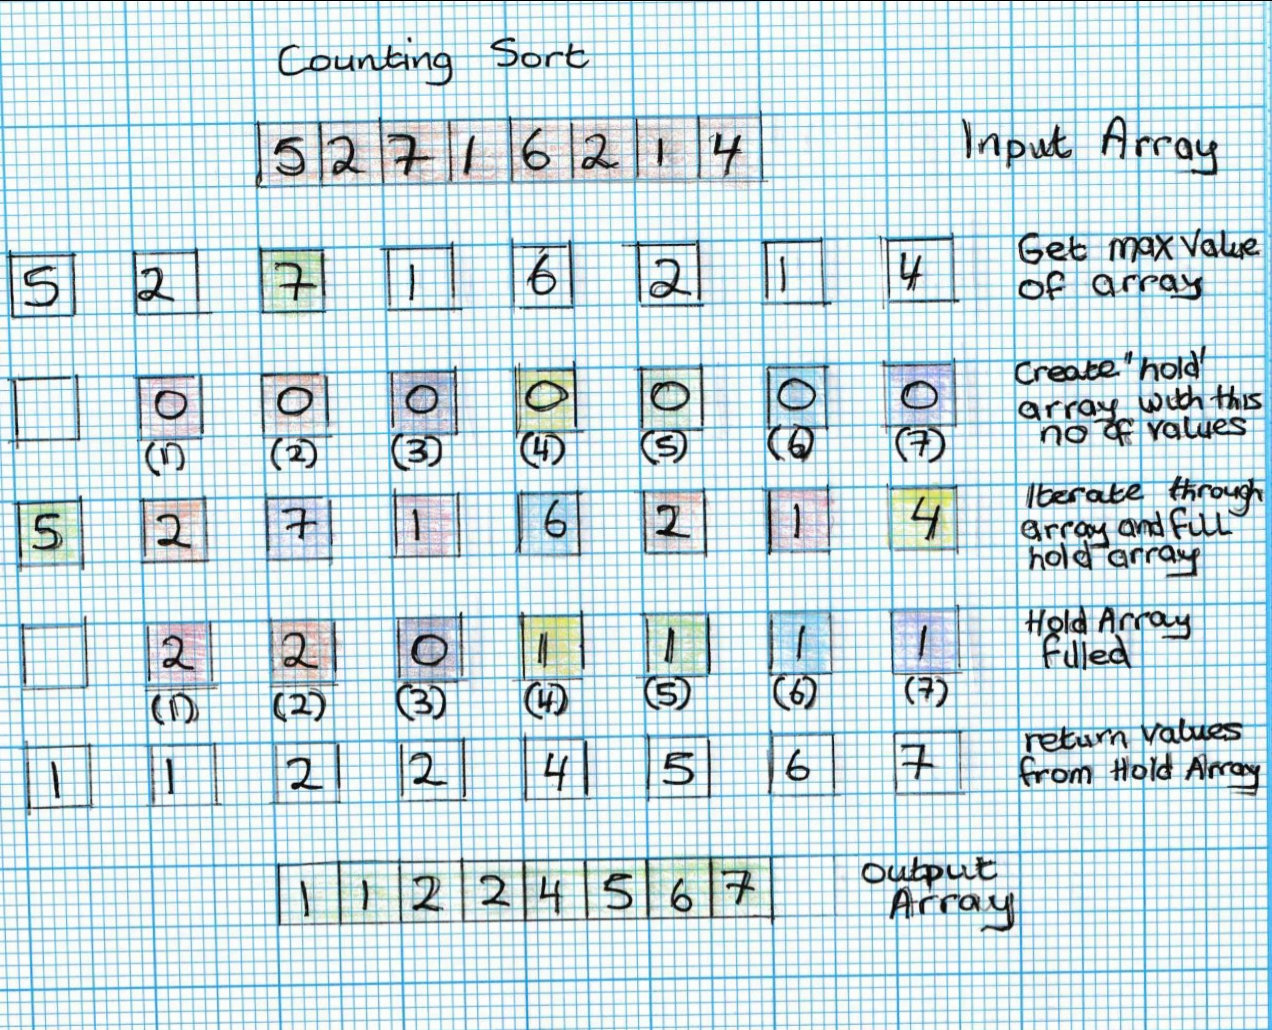 Counting Sort
5 2 7 1 6 2 1 4 Input Array
5 2 7 1 6 2 1 4 Get max value
of array
0 0 0 0 0 0 0 Create "hold'
array with this
(1) (2) (3) (4) (5) (6) (7) no of values
5 2 7 1 6 2 1 4 Iterate through
array and fill
hold array
2 2 0 1 1 1 1 Hold Array
filled
(1) (2) (3) (4) (5) (6) (7)
1 1 2 2 4 5 6 7 return values
from Hold Array
1 1 2 2 4 5 6 7 output
Array